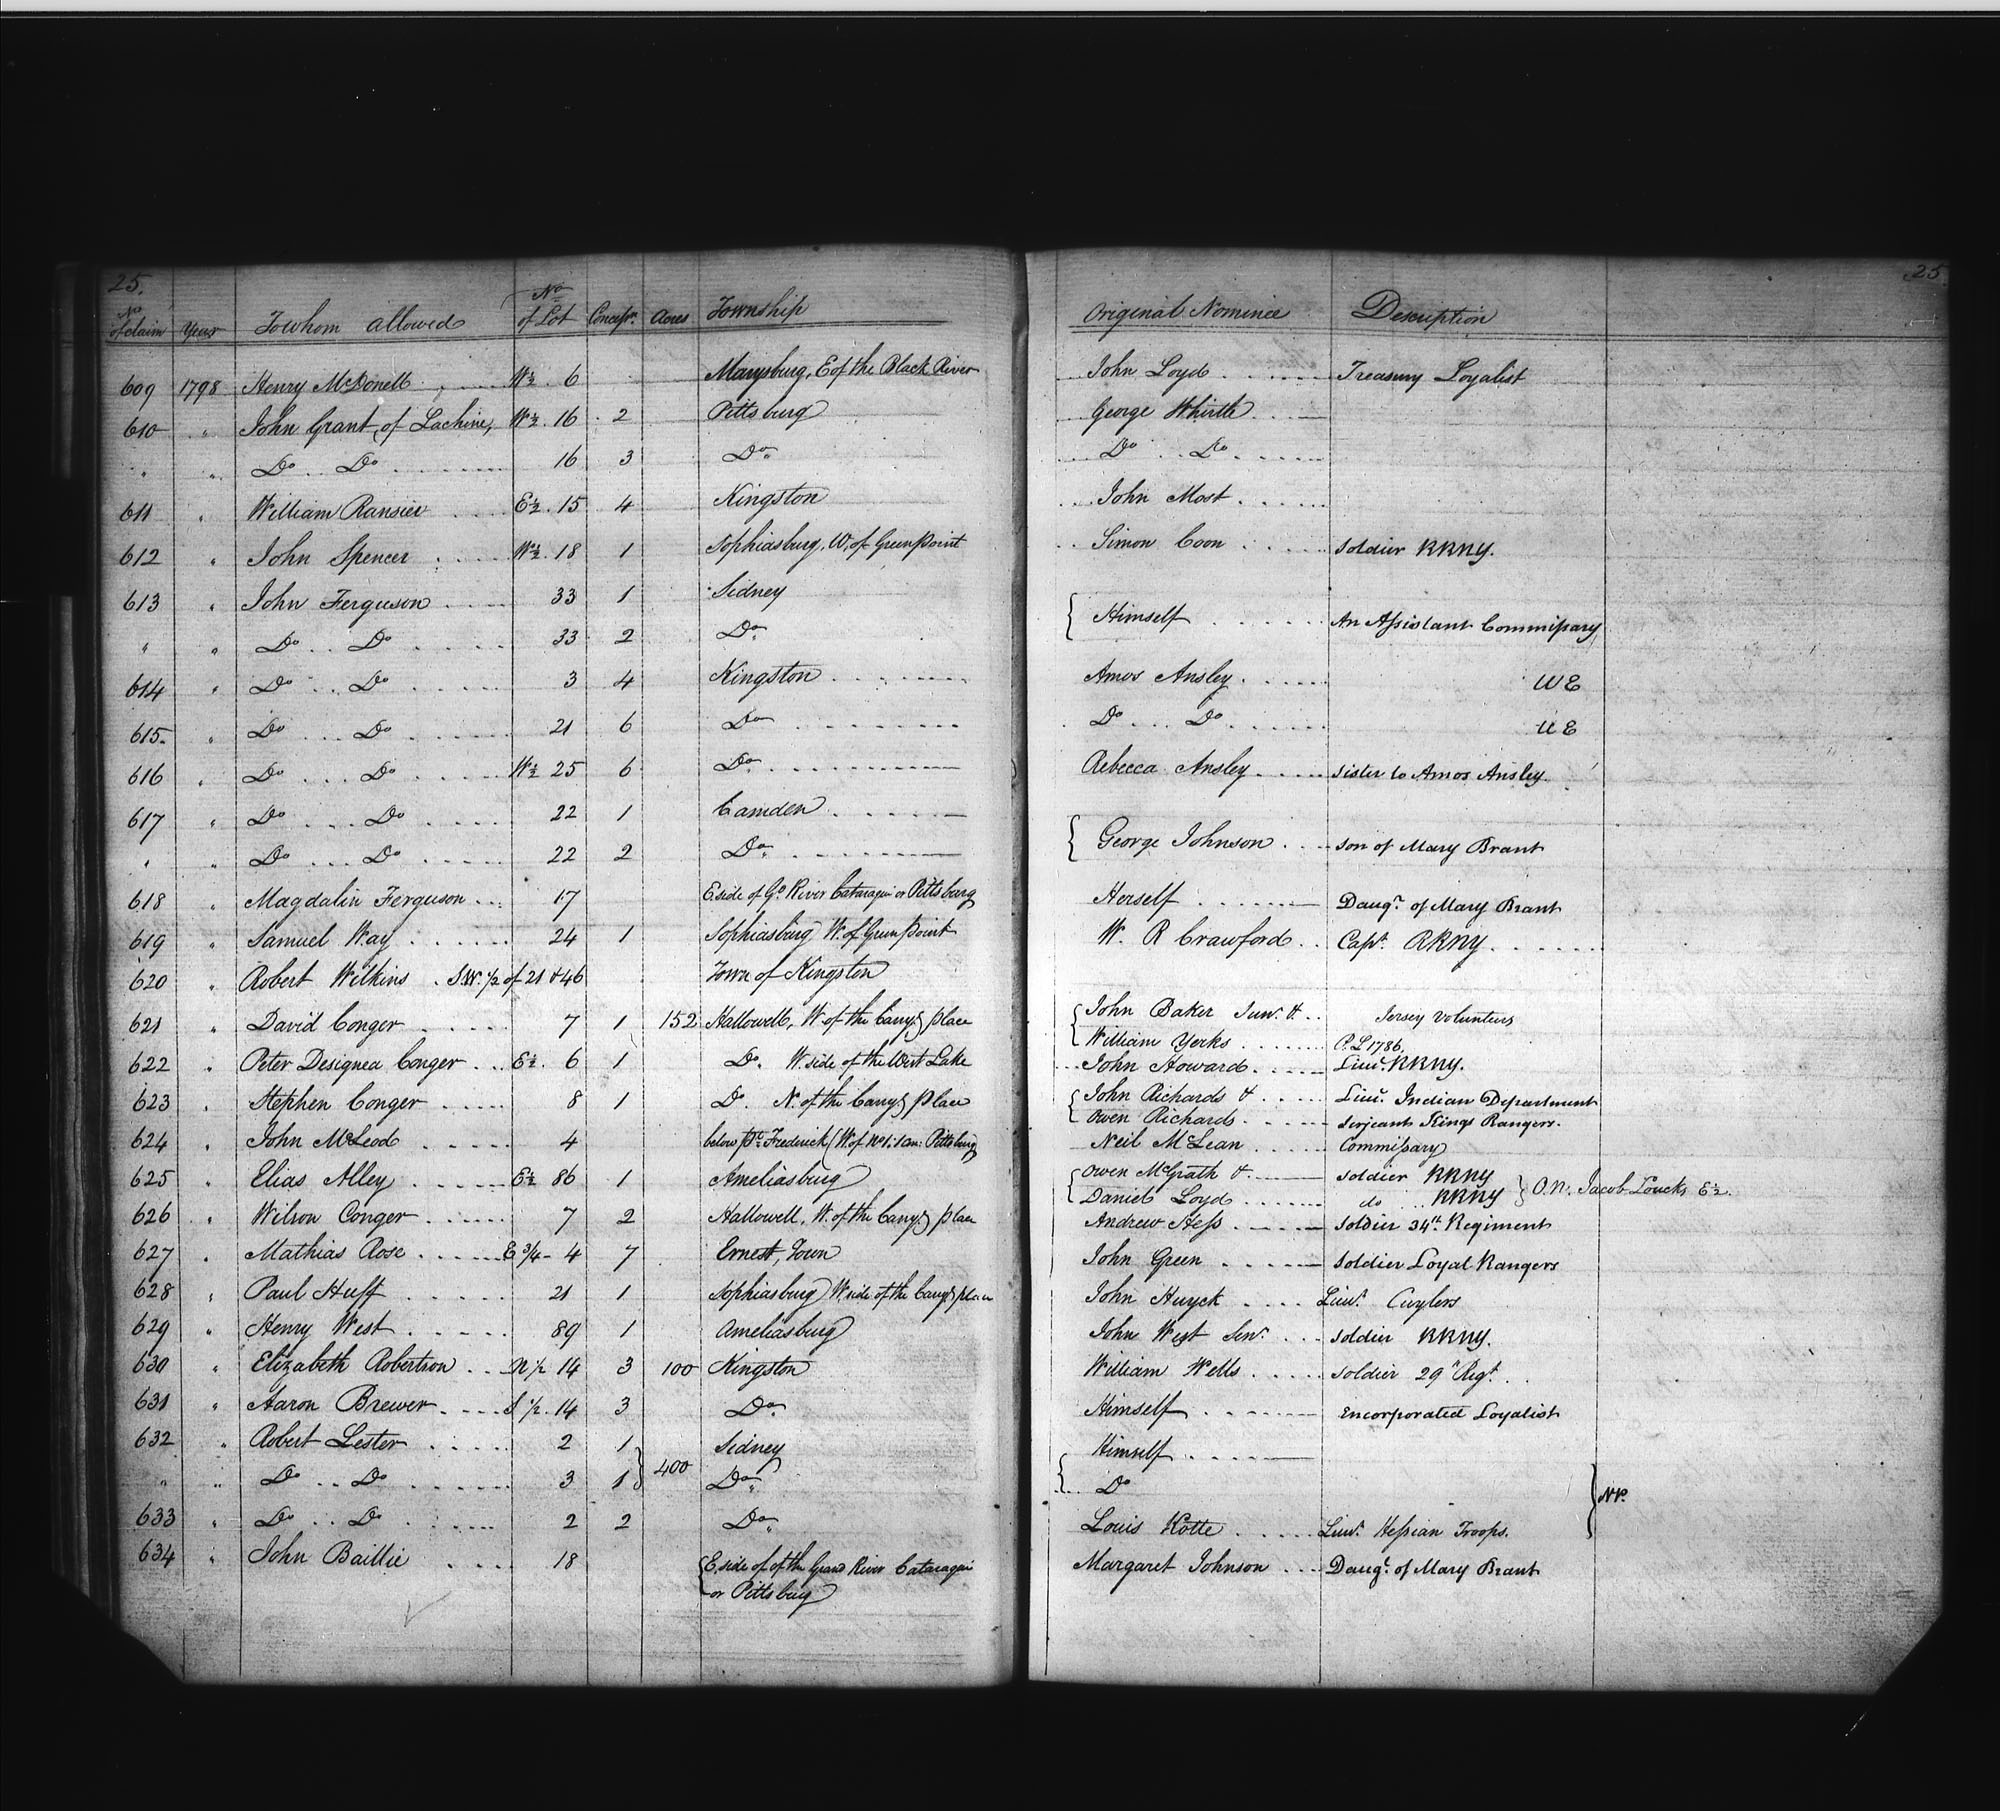 25.
No of claim Year To whom allowed No of Lot Concess.n Acres Township
609 1798 Henry McDonell W½ 6 Marysburg, E of the Black River
610 " John Grant of Lachine, W½ 16 2 Pittsburg
" " Do Do 16 3 Do
611 " William Ransier E½ 15 4 Kingston
612 " John Spencer W½ 18 1 Sophiasburg, W. of Green Point
613 " John Ferguson 33 1 Sidney
" " Do Do 33 2 Do
614 " Do Do 3 4 Kingston
615 " Do Do 21 6 Do
616 " Do Do W½ 25 6 Do
617 " Do Do 22 1 Camden
" " Do Do 22 2 Do
618 " Magdalin Ferguson 17 E side of Gd River Cataraqui or Pittsburg
619 " Samuel Way 24 1 Sophiasburg W. of Green Point
620 " Robert Wilkins S.W. 1/2 of 21 & 46 Town of Kingston
621 " David Conger 7 1 152 Hallowell, W. of the Carryg place
622 " Peter Designea Conger E½ 6 1 Do. W. side of the West Lake
623 " Stephen Conger 8 1 Do. N. of the Carryg place
624 " John McLeod 4 below pt Frederick (W. of No 1: 1 con: Pittsburg)
625 " Elias Alley E½ 86 1 Ameliasburg
626 " Wilson Conger 7 2 Hallowell, W. of the Carryg place
627 " Mathias Rose E 3/4 - 4 7 Ernest Town
628 " Paul Huff 21 1 Sophiasburg W side of the Carryg place
629 " Henry West 89 1 Ameliasburg
630 " Elizabeth Robertson N 1/2 14 3 100 Kingston
631 " Aaron Brewer S 1/2 14 3 Do
632 " Robert Lester 2 1 Sidney
" " Do Do 3 1 } 400 Do
633 " Do Do 2 2 Do
634 " John Baillie 18 { E. side of of the Grand River Cataraqui
or Pittsburg
25
Original Nominee Description
John Loyd Treasury Loyalist
George Whirth
Do Do
John Most
Simon Coon Soldier RRNY.
{ Himself An Assistant Commissary
Amos Ansley UE
Do Do UE
Rebecca Ansley sister to Amos Ansley
{ George Johnson son of Mary Brant
Herself Daugr. of Mary Brant
W. R Crawford Capt. RRNY
{ John Baker Junr. & Jersey Volunteers
William Yerks P. L 1786.
John Howard Lieut. RRNY.
{ John Richards & Lieut. Indian Department
Owen Richards Serjeant Kings Rangers.
Neil McLean Commissary
{ Owen McGrath & Soldier RRNY
Daniel Loyd do RRNY } O.N. Jacob Loucks E½.
Andrew Hess Soldier 34th Regiment
John Green Soldier Loyal Rangers
John Huyck Lieut. Cuylers
John West Senr. Soldier RRNY.
William Wells Soldier 29th Regt.
Himself Encorporated Loyalist
{ Himself
Do
Louis Kotte Lieut. Hessian Troops. } NP.
Margaret Johnson Daugr. of Mary Brant